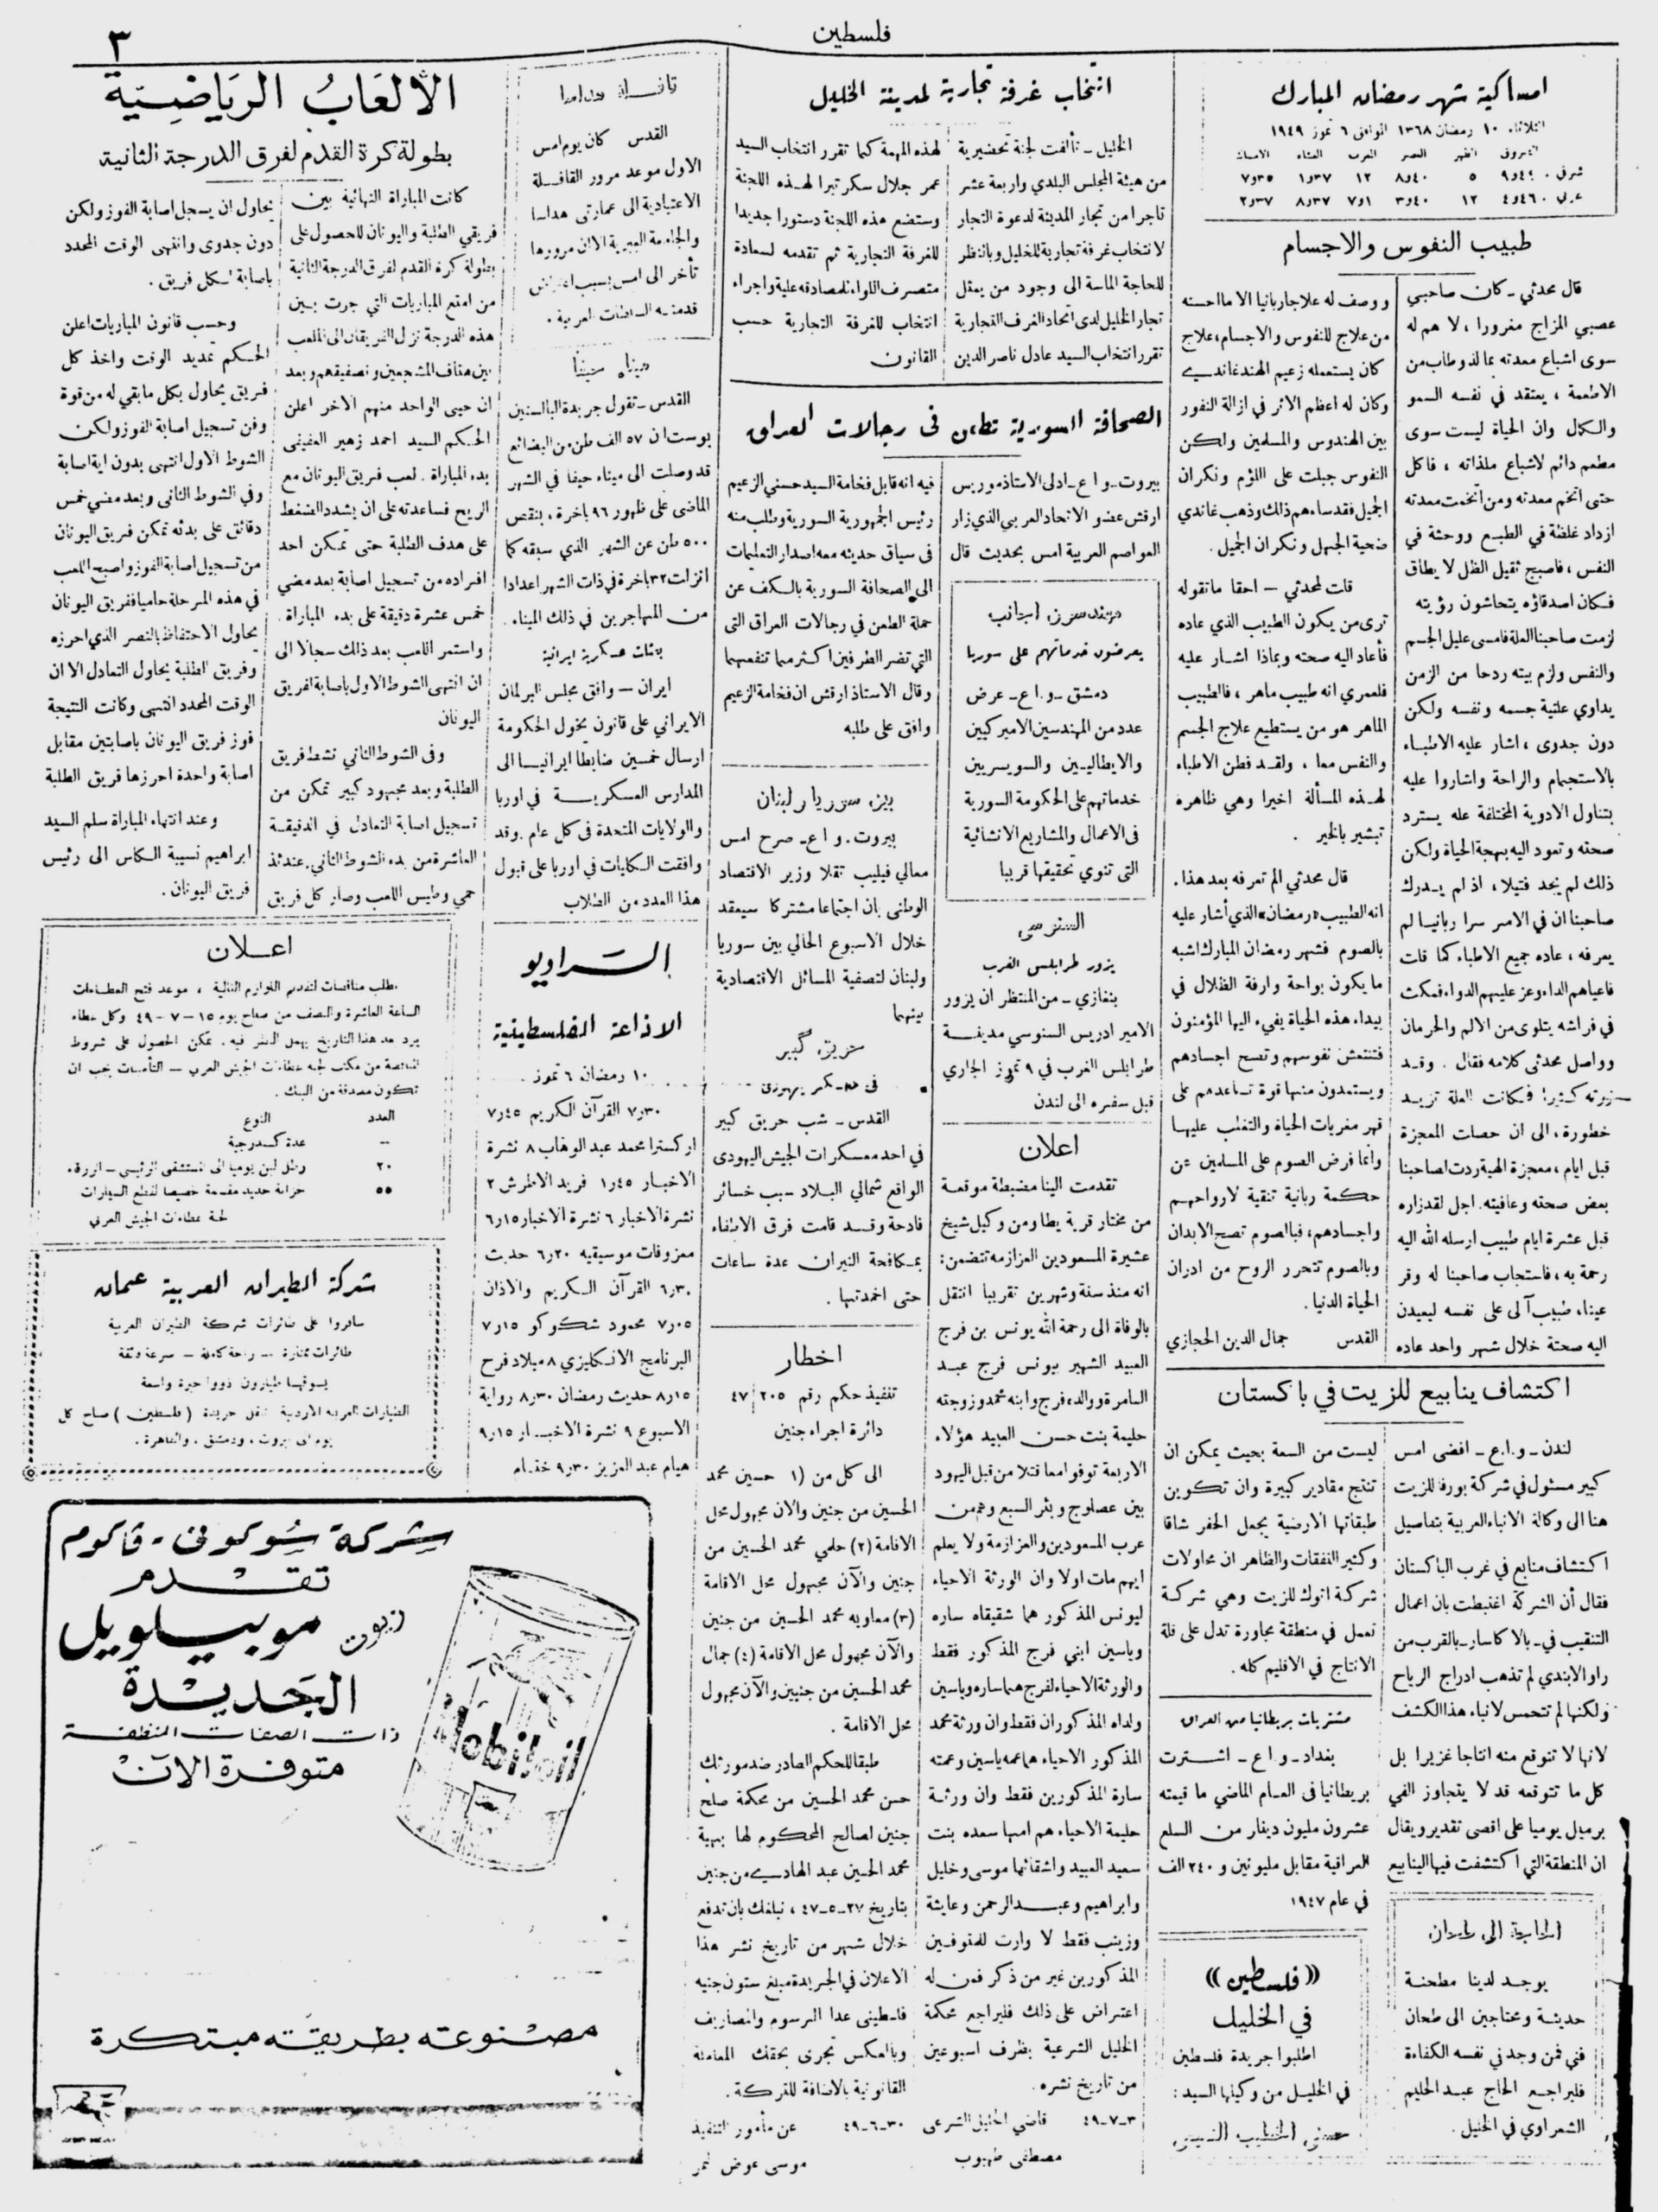 فلسطين
٣
امساكية شهر رمضان المبارك
الثلاثاء ١٠ رمضان ١٣٦٨ الموافق ٦ تموز ١٩٤٩
الشروق الظهر العصر المغرب العشاء الامساك
طبيب النفوس والاجسام
قال محدثي ـ كان صاحبي
عصبي المزاج مغرورا ، لا هم له
سوى اشباع معدته بما لذ وطاب من
الاطعمة ، يعتقد في نفسه السمو
والكمال وان الحياة ليست سوى
مطعم دائم لاشباع ملذاته ، فاكل
حتى اتخم معدته ومن اتخمت معدته
ازداد غلظة في الطبع ووحشة في
النفس ، فاصبح ثقيل الظل لا يطاق
فكان اصدقاؤه يتحاشون رؤيته
لزمت صاحبنا العلة فامسى عليل الجسم
والنفس ولزم بيته ردحا من الزمن
يداوي علتية جسمه ونفسه ولكن
دون جدوى ، اشار عليه الاطباء
بالاستجمام والراحة واشاروا عليه
بتناول الادوية المختلفة عله يسترد
صحته وتعود اليه بهجة الحياة ولكن
ذلك لم يجد فتيلا ، اذ لم يدرك
صاحبنا ان في الامر سرا ربانيا لم
يعرفه ، عاده جميع الاطباء كما قلت
فاعياهم الداء وعز عليهم الدواء فمكث
في فراشه يتلوى من الالم والحرمان
وواصل محدثي كلامه فقال . وقد
زرته كثيرا فكانت العلة تزيد
خطورة ، الى ان حصات المعجزة
قبل ايام ، معجزة الهية ردت لصاحبنا
بعض صحته وعافيته . اجل لقد زاره
قبل عشرة ايام طبيب ارسله الله اليه
رحمة به ، فاستجاب صاحبنا له وقر
عينا ، طبيب آلى على نفسه ليعيدن
اليه صحتة خلال شهر واحد عاده
ووصف له علاجا ربانيا الا ما احسنه
من علاج للنفوس والاجسام ، علاج
كان يستعمله زعيم الهند غاندي
وكان له اعظم الاثر في ازالة النفور
بين الهندوس والمسلمين ولكن
النفوس جبلت على اللؤم ونكران
الجميل فقد ساءهم ذلك وذهب غاندي
ضحية الجهل ونكران الجميل .
قلت لمحدثي – احقا ما تقوله
ترى من يكون الطبيب الذي عاده
فأعاد اليه صحته وبماذا اشار عليه
فلعمري انه طبيب ماهر ، فالطبيب
الماهر هو من يستطيع علاج الجسم
والنفس معا ، ولقد فطن الاطباء
لهذه المسألة اخيرا وهي ظاهرة
تبشير بالخير .
قال محدثي الم تعرفه بعد هذا .
انه الطبيب «رمضان» الذي أشار عليه
بالصوم فشهر رمضان المبارك اشبه
ما يكون بواحة وارفة الظلال في
بيداء هذه الحياة يفيء اليها المؤمنون
فتنتعش نفوسهم وتصح اجسادهم
ويستمدون منها قوة تساعدهم على
قهر مغريات الحياة والتغلب عليها
وانما فرض الصوم على المسلمين عن
حكمة ربانية تنقية لارواحهم
واجسادهم، فبالصوم تصح الابدان
وبالصوم تتحرر الروح من ادران
الحياة الدنيا .
القدس جمال الدين الحجازي
اكتشاف ينابيع للزيت في باكستان
لندن ـ و.ا.ع ـ افضى امس
كبير مسئول في شركة بورما للزيت
هنا الى وكالة الانباء العربية بتفاصيل
اكتشاف منابع في غرب الباكستان
فقال أن الشركة اغتبطت بان اعمال
التنقيب في ـ بالاكاسار ـ بالقرب من
راوالابندي لم تذهب ادراج الرياح
ولكنها لم تتحمس لانباء هذا الكشف
لانها لا تتوقع منه انتاجا غزيرا بل
كل ما تتوقعه قد لا يتجاوز الفي
برميل يوميا على اقصى تقدير ويقال
ان المنطقة التي اكتشفت فيها الينابيع
ليست من السعة بحيث يمكن ان
تنتج مقادير كبيرة وان تكوين
طبقاتها الارضية يجعل الحفر شاقا
وكثير النفقات والظاهر ان محاولات
شركة اتوك للزيت وهي شركة
تعمل في منطقة مجاورة تدل على قلة
الانتاج في الاقليم كله .
مشتريات بريطانيا من العراق
بغداد ـ و ا ع ـ اشترت
بريطانيا فى العام الماضي ما قيمته
عشرون مليون دينار من السلع
العراقية مقابل مليونين و ٢٤٠ الف
في عام ١٩٤٧
الحاجة الى طحان
يوجد لدينا مطحنة
حديثة ومحتاجين الى طحان
فني فمن وجد في نفسه الكفاءة
فليراجع الحاج عبد الحليم
الشعراوي في الخليل .
((فلسطين))
في الخليل
اطلبوا جريدة فلسطين
في الخليل من وكيلها السيد :
انتخاب غرفة تجارية لمدينة الخليل
الخليل ـ تألفت لجنة تحضيرية
من هيئة المجلس البلدي واربعة عشر
تاجرا من تجار المدينة لدعوة التجار
لانتخاب غرفة تجارية للخليل وبالنظر
للحاجة الماسة الى وجود من يمثل
تجار الخليل لدى اتحاد الغرف التجارية
تقرر انتخاب السيد عادل ناصر الدين
لهذه المهمة كما تقرر انتخاب السيد
عمر جلال سكرتيرا لهذه اللجنة
وستضع هذه اللجنة دستورا جديدا
للغرفة التجارية ثم تقدمه لسعادة
متصرف اللواء للمصادقة علية واجراء
انتخاب للغرفة التجارية حسب
القانون
الصحافة السورية تطعن فى رجالات العراق
بيروت ـ و ا ع ـ ادلى الاستاذ موريس
ارقش عضو الاتحاد العربي الذي زار
العواصم العربية امس بحديث قال
فيه انه قابل فخامة السيد حسني الزعيم
رئيس الجمهورية السورية وطلب منه
فى سياق حديثه معه اصدار التعليمات
الى الصحافة السورية بالكف عن
حملة الطعن في رجالات العراق التى
التي تضر الطرفين اكثر مما تنفعهما
وقال الاستاذ ارقش ان فخامة الزعيم
وافق على طلبه
مهندسون اجانب
يعرضون خدماتهم على سوريا
دمشق ـ و.ا ع ـ عرض
عدد من المهندسين الاميركيين
والايطاليين والسويسريين
خدماتهم على الحكومة السورية
فى الاعمال والمشاريع الانشائية
التى تنوي تحقيقها قريبا
السنوسي
يزور طرابلس الغرب
بنغازي ـ من المنتظر ان يزور
الامير ادريس السنوسي مدينة
طرابلس الغرب في ٩ تموز الجاري
قبل سفره الى لندن
اعلان
تقدمت الينا مضبطة موقعة
من مختار قرية يطا ومن وكيل شيخ
عشيرة المسعودين العزازمة تتضمن :
انه منذ سنة وشهرين تقريبا انتقل
بالوفاة الى رحمة الله يونس بن فرج
العبيد الشهير بيونس فرج عبد
السامرة ووالده فرج وابنه محمد وزوجته
حليمة بنت حسن العبيد هؤلاء
الاربعة توفوا معا قتلا من قبل اليهود
بين عصلوج وبئر السبع وهم من
عرب المسعودين والعزازمة ولا يعلم
ايهم مات اولا وان الورثة الاحياء
ليونس المذكور هما شقيقاه ساره
وياسين ابني فرج المذكور فقط
والورثة الاحياء لفرج هما ساره وياسين
ولداه المذكوران فقط وان ورثة محمد
المذكور الاحياء هما عمه ياسين وعمته
سارة المذكورين فقط وان ورثة
حليمة الاحياء هم امها سعده بنت
سعيد العبيد واشقائها موسى وخليل
وابراهيم وعبد الرحمن وعايشة
وزينب فقط لا وارث للمتوفين
المذكورين غير من ذكر فمن له
اعتراض على ذلك فليراجع محكمة
الخليل الشرعية بظرف اسبوعين
من تاريخ نشره .
٣ـ٧ـ٤٩ قاضي الخليل الشرعى
مصطفى طهبوب
بين سوريا ولبنان
بيروت . و ا ع ـ صرح امس
معالي فيليب تقلا وزير الاقتصاد
الوطنى بان اجتماعا مشتركا سيعقد
خلال الاسبوع الحالي بين سوريا
ولبنان لتصفية المسائل الاقتصادية
بينهما
حريق كبير
فى معسكر يهودى
القدس ـ شب حريق كبير
في احد معسكرات الجيش اليهودى
الواقع شمالي البلاد سبب خسائر
فادحة وقد قامت فرق الاطفاء
بمكافحة النيران عدة ساعات
حتى اخمدتها .
اخطار
تنفيذ حكم رقم ٢٠٥/٤٧
دائرة اجراء جنين
الى كل من (١ حسين محمد
الحسين من جنين والان مجهول محل
الاقامة (٢) حلمي محمد الحسين من
جنين والآن مجهول محل الاقامة
(٣) معاويه محمد الحسين من جنين
والآن مجهول محل الاقامة (٤) جمال
محمد الحسين من جنيين والآن مجهول
محل الاقامة .
طبقا للحكم الصادر ضد مورثك
حسن محمد الحسين من محكمة صلح
جنين لصالح المحكوم لها بهية
محمد الحسين عبد الهادي من جنين
بتاريخ ٢٧ـ٥ـ٤٧ ، نبلغك بان تدفع
خلال شهر من تاريخ نشر هذا
الاعلان في الجريدة مبلغ ستون جنيه
فلسطينى عدا الرسوم والمصاريف
وبالعكس تجرى بحقك المعاملة
القانونية بالاضافة للتركة .
٣٠ـ٦ـ٤٩ عن مأمور التنفيذ
موسى عوض نمر
القدس كان يوم امس
الاول موعد مرور القافلة
الاعتيادية الى عمارتي هداسا
والجامعة العبرية الا ان مرورها
تأخر الى امس بسبب اعتراض
قدمته السلطات العربية .
ميناء حيفا
القدس ـ تقول جريدة البالستين
بوست ان ٥٧ الف طن من البضائع
قد وصلت الى ميناء حيفا في الشهر
الماضى على ظهور ٩٦ باخرة ، بنقص
٥٠٠ طن عن الشهر الذي سبقه كما
انزلت ٣٢ باخرة في ذات الشهر اعدادا
من المهاجرين في ذلك الميناء .
بعثات عسكرية ايرانية
ايران – وافق مجلس البرلمان
الايراني على قانون يخول الحكومة
ارسال خمسين ضابطا ايرانيا الى
المدارس العسكرية في اوربا
والولايات المتحدة فى كل عام . وقد
وافقت الكليات في اوربا على قبول
هذا العدد من الطلاب
الراديو
الاذاعة الفلسطينية
١٠ رمضان ٦ تموز
٧٫٣٠ القرآن الكريم ٧٫٤٥
اركسترا محمد عبد الوهاب ٨ نشرة
الاخبار ١٫٤٥ فريد الاطرش ٢
نشرة الاخبار ٦ نشرة الاخبار ٦٫١٥
معزوفات موسيقيه ٦٫٢٠ حديث
٦٫٣٠ القرآن الكريم والاذان
٧٫٠٥ محمود شكوكو ٧٫١٥
البرنامج الانكليزي ٨ ميلاد فرح
٨٫١٥ حديث رمضان ٨٫٣٠ رواية
الاسبوع ٩ نشرة الاخبار ٩٫١٥
هيام عبد العزيز ٩٫٣٠ ختام
الالعاب الرياضية
بطولة كرة القدم لفرق الدرجة الثانية
كانت المباراة النهائية بين
فريقي الطلبة واليونان للحصول على
بطولة كرة القدم لفرق الدرجة الثانية
من امتع المباريات التي جرت بين
هذه الدرجة نزل الفريقان الى الملعب
بين هتاف المشجعين وتصفيقهم وبعد
ان حيى الواحد منهم الاخر اعلن
الحكم السيد احمد زهير العفيفى
بدء المباراة . لعب فريق اليونان مع
الريح فساعدته على ان يشدد الضغط
على هدف الطلبة حتى تمكن احد
افراده من تسجيل اصابة بعد مضي
خمس عشرة دقيقة على بدء المباراة .
واستمر اللعب بعد ذلك سجالا الى
ان انتهى الشوط الاول باصابة لفريق
اليونان
وفى الشوط الثاني نشط فريق
الطلبة وبعد مجهود كبير تمكن من
تسجيل اصابة التعادل في الدقيقة
العاشرة من بدء الشوط الثاني . عندئذ
حمي وطيس اللعب وصار كل فريق
يحاول ان يسجل اصابة الفوز ولكن
دون جدوى وانتهى الوقت المحدد
باصابة لكل فريق .
وحسب قانون المباريات اعلن
الحكم تمديد الوقت واخذ كل
فريق يحاول بكل ما بقي له من قوة
وفن تسجيل اصابة الفوز ولكن
الشوط الاول انتهى بدون اية اصابة
وفي الشوط الثانى وبعد مضي خمس
دقائق على بدئه تمكن فريق اليونان
من تسجيل اصابة الفوز واصبح اللعب
في هذه المرحلة حاميا ففريق اليونان
يحاول الاحتفاظ بالنصر الذي احرزه
وفريق الطلبة يحاول التعادل الا ان
الوقت المحدد انتهى وكانت النتيجة
فوز فريق اليونان باصابتين مقابل
اصابة واحدة احرزها فريق الطلبة
وعند انتهاء المباراة سلم السيد
ابراهيم نسيبة الكاس الى رئيس
فريق اليونان .
اعلان
تطلب مناقصات لتقديم اللوازم التالية ، موعد فتح العطاءات
الساعة العاشرة والنصف من صباح يوم ١٥ – ٧ – ٤٩ وكل عطاء
يرد بعد هذا التاريخ يهمل النظر فيه . يمكن الحصول على شروط
المناقصة من مكتب لجنة عطاءات الجيش العربي – التأمينات يجب ان
تكون مصدقة من البنك .
العدد النوع
-- عدة كندرجية
٢٠ رطل لبن يوميا الى المستشفى الرئيسي – الزرقاء
٥٥ خزانة حديد مقسمة خصيصا لقطع السيارات
لجنة عطاءات الجيش العربي
شركة الطيران العربية عمان
سافروا على طائرات شركة الطيران العربية
طائرات ممتازة – راحة كاملة – سرعة ودقة
يسوقها طيارون ذووا خبرة واسعة
الطيارات العربية الاردنية تنقل جريدة ( فلسطين ) صباح كل
يوم الى بيروت ، ودمشق ، والقاهرة .
شركة سوكونى - ڤاكوم
تقدم
زيوت موبيلويل
الجديدة
ذات الصفات المنظفة
متوفرة الآن
Mobiloil
مصنوعة بطريقة مبتكرة